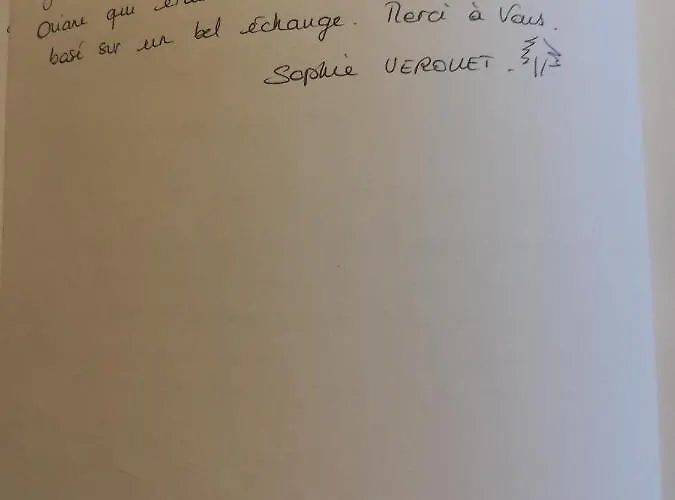 qui
basé sur un bel échange. Merci à Vous.
Sophie VEROUET.